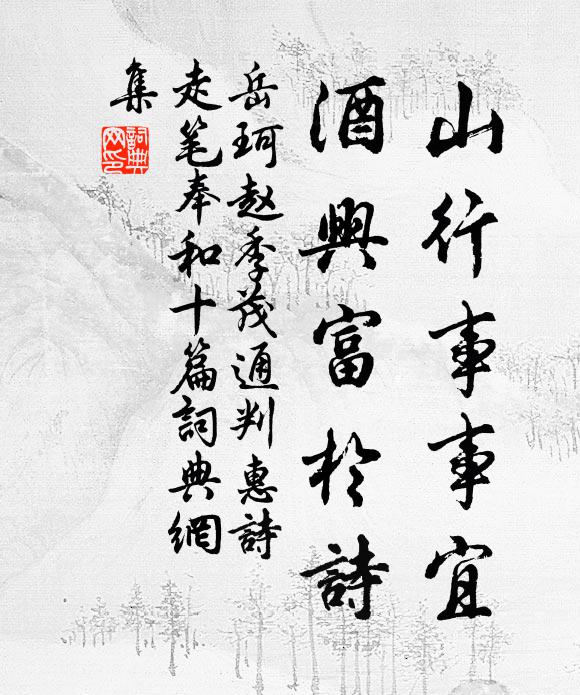 山行事事宜
酒興富於詩
岳珂赵季茂通判惠詩
走笔奉和十篇詞典網
集
詞典網印